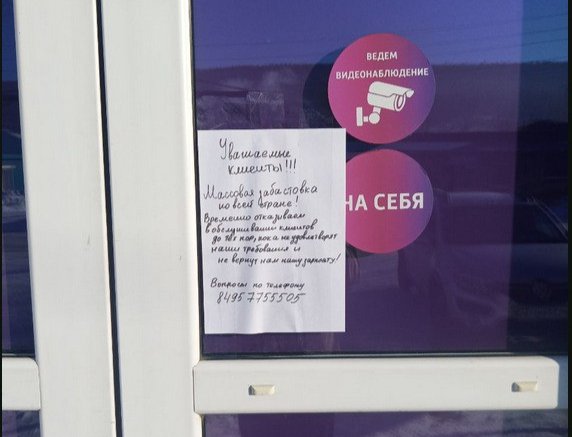 ВЕДЕМ
ВИДЕОНАБЛЮДЕНИЕ
НА СЕБЯ
Уважаемые
клиенты!!!
Массовая забастовка
по всей стране!
Временно отказываем
в обслуживании клиентов
до тех пор, пока не удовлетворят
наши требования и
не вернут нам нашу зарплату!
Вопросы по телефону
84957755505